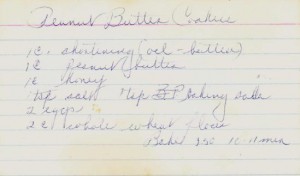 Peanut Butter Cookies
1 c. shortening (oel - butter)
1 c Peanut butter
1 c honey
1 tsp salt 1 tsp B P baking soda
2 eggs
2 c whole wheat flour
Bake 350 10-11 min